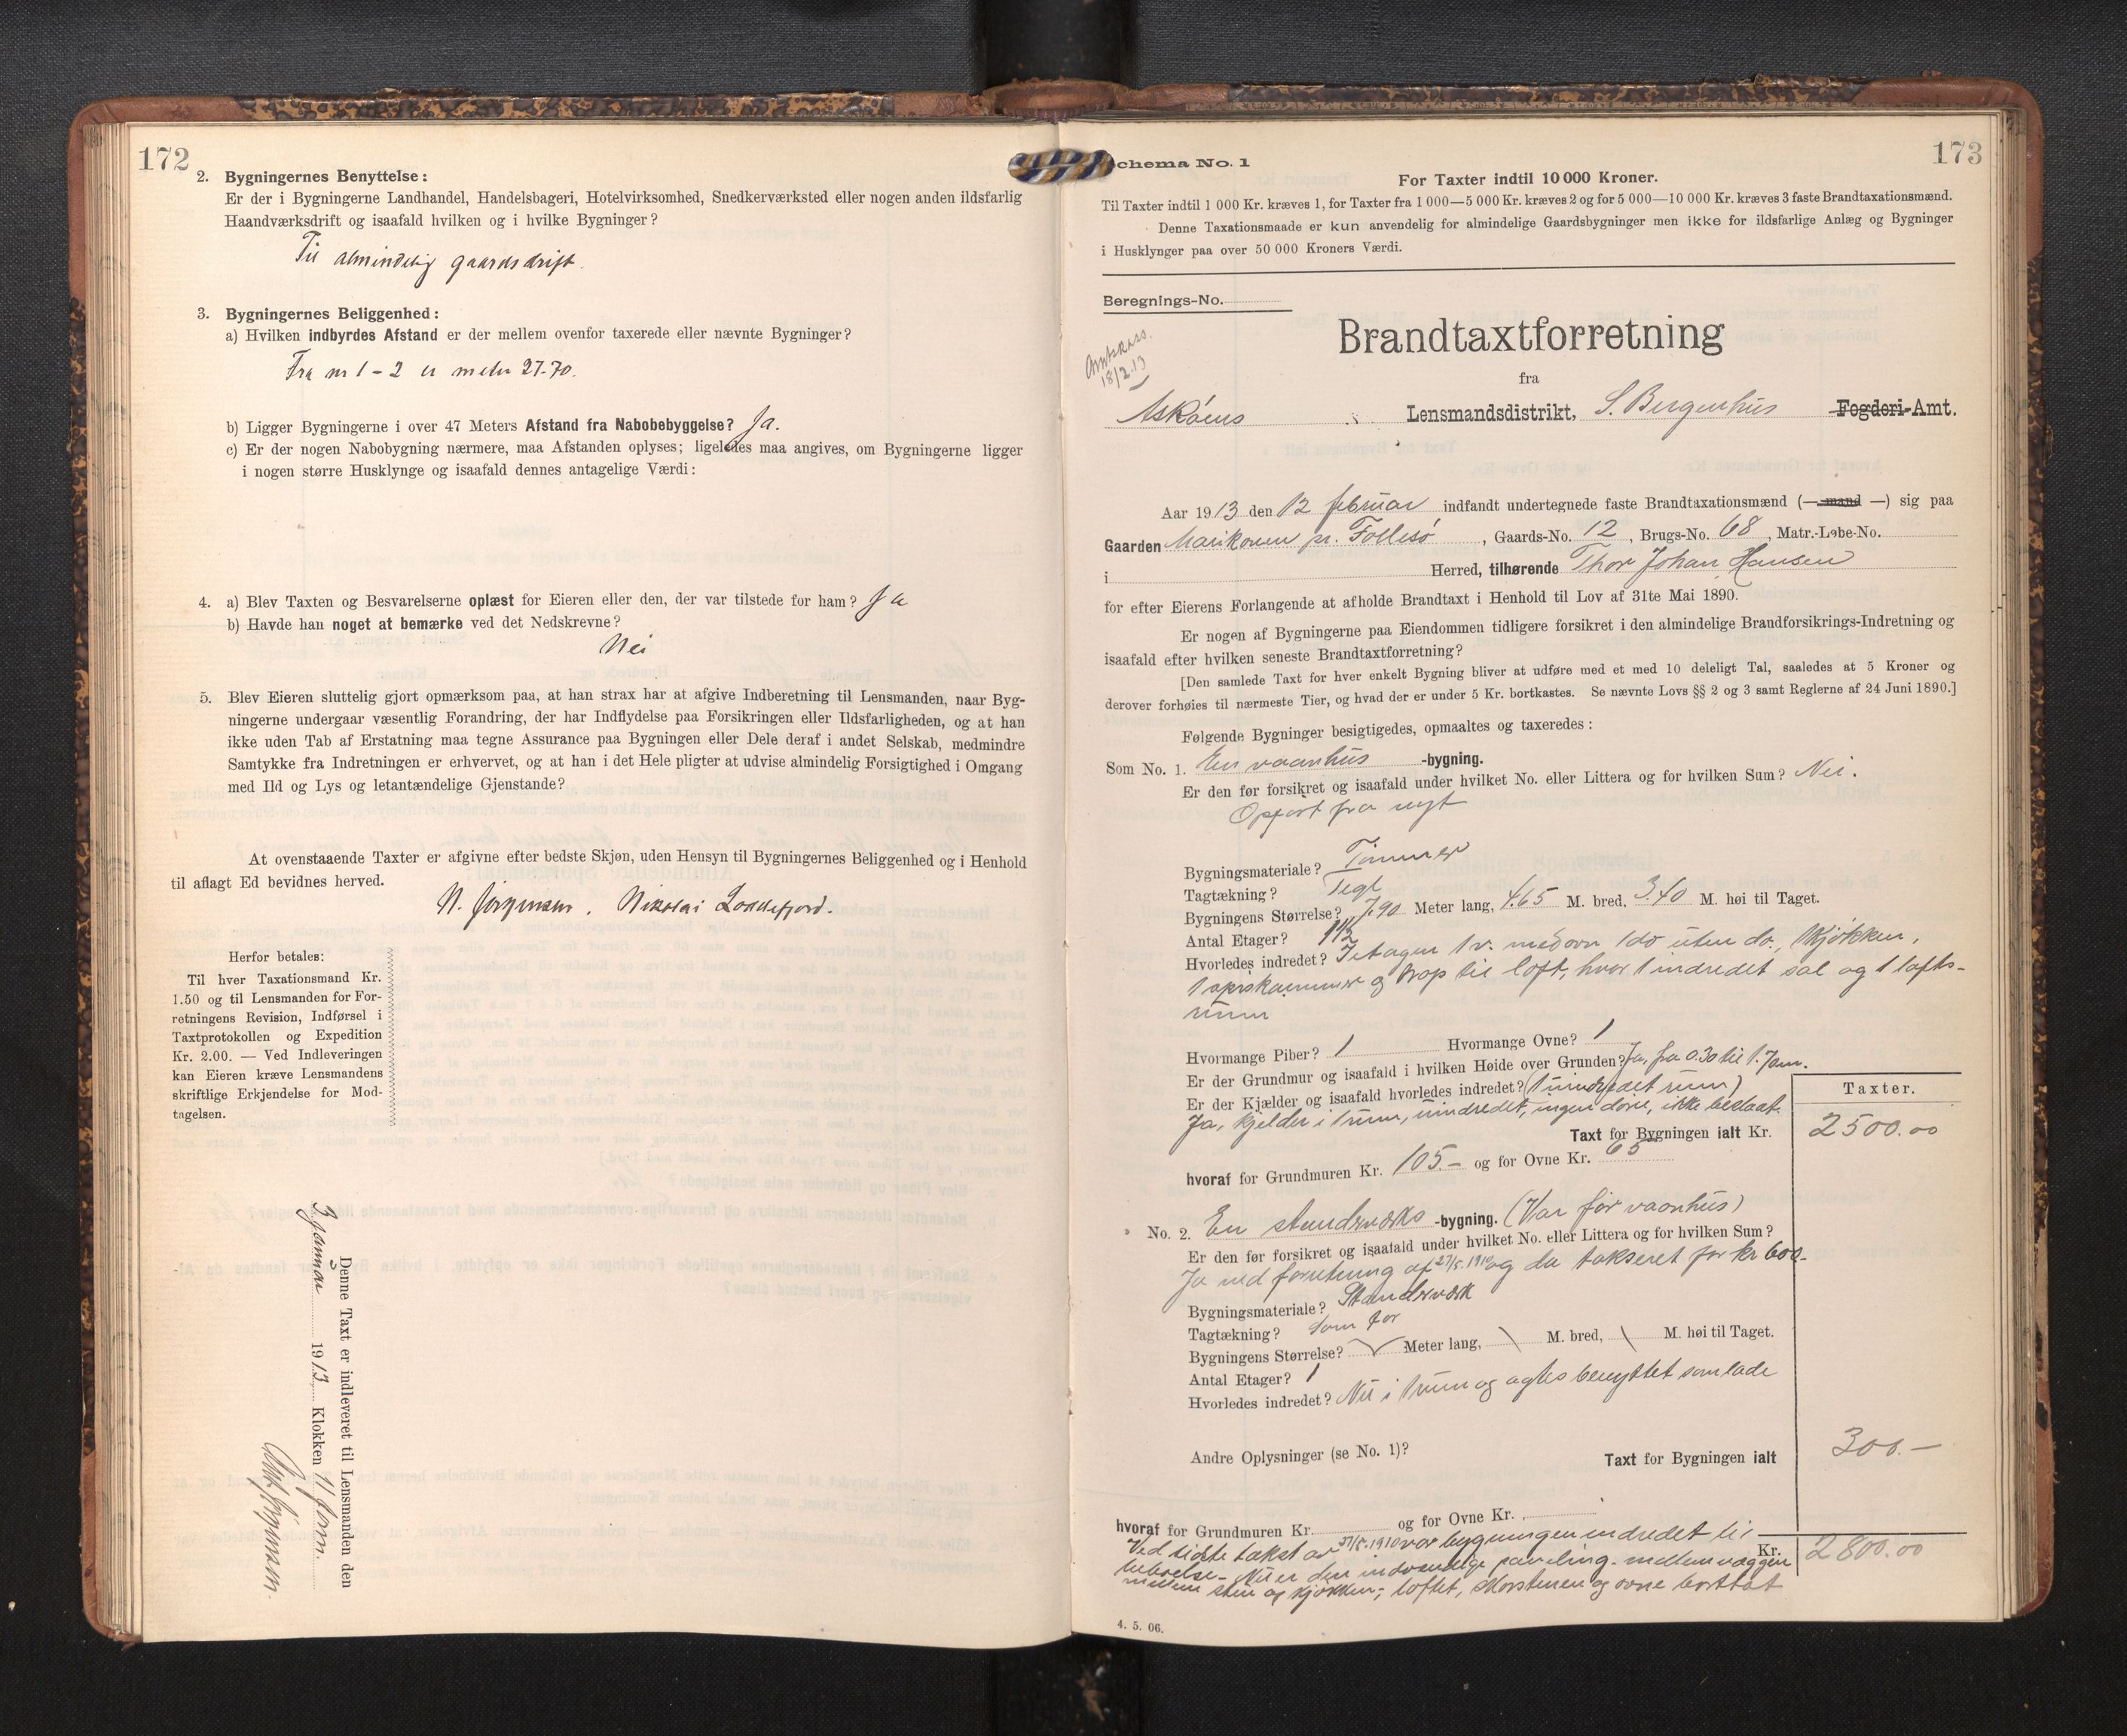 172
2. Bygningernes Benyttelse:
Er der i Bygningerne Landhandel, Handelsbageri, Hotelvirksomhed, Snedkerværksted eller nogen anden ildsfarlig
Haandværksdrift og isaafald hvilken og i hvilke Bygninger?
Til almindelig gaardsdrift.
3. Bygningernes Beliggenhed:
a) Hvilken indbyrdes Afstand er der mellem ovenfor taxerede eller nævnte Bygninger?
Fra nr 1 - 2 er meter 27.70.
b) Ligger Bygningerne i over 47 Meters Afstand fra Nabobebyggelse? Ja.
c) Er der nogen Nabobygning nærmere, maa Afstanden oplyses; ligeledes maa angives, om Bygningerne ligger
i nogen større Husklynge og isaafald dennes antagelige Værdi:
4. a) Blev Taxten og Besvarelserne oplæst for Eieren eller den, der var tilstede for ham? Ja
b) Havde han noget at bemærke ved det Nedskrevne?
Nei
5. Blev Eieren sluttelig gjort opmærksom paa, at han strax har at afgive Indberetning til Lensmanden, naar Byg-
ningerne undergaar væsentlig Forandring, der har Indflydelse paa Forsikringen eller Ildsfarligheden, og at han
ikke uden Tab af Erstatning maa tegne Assurance paa Bygningen eller Dele deraf i andet Selskab, medmindre
Samtykke fra Indretningen er erhvervet, og at han i det Hele pligter at udvise almindelig Forsigtighed i Omgang
med Ild og Lys og letantændelige Gjenstande?
At ovenstaaende Taxter er afgivne efter bedste Skjøn, uden Hensyn til Bygningernes Beliggenhed og i Henhold
til aflagt Ed bevidnes herved.
N. Jørgensen. Nikolai
Herfor betales:
Til hver Taxationsmand Kr.
1.50 og til Lensmanden for For-
retningens Revision, Indførsel i
Taxtprotokollen og Expedition
Kr. 2.00. — Ved Indleveringen
kan Eieren kræve Lensmandens
skriftlige Erkjendelse for Mod-
tagelsen.
Denne Taxt er indleveret til Lensmanden den
1913 Klokken 11 form.
173
chema No. 1
For Taxter indtil 10 000 Kroner.
Til Taxter indtil 1 000 Kr. kræves 1, for Taxter fra 1 000—5 000 Kr. kræves 2 og for 5 000—10 000 Kr. kræves 3 faste Brandtaxationsmænd.
Denne Taxationsmaade er kun anvendelig for almindelige Gaardsbygninger men ikke for ildsfarlige Anlæg og Bygninger
i Husklynger paa over 50 000 Kroners Værdi.
Beregnings-No.
18/2.13
Brandtaxtforretning
fra
Askøens Lensmandsdistrikt, S. Bergenhus Fogderi-Amt.
Aar 1913 den 12 februar indfandt undertegnede faste Brandtaxationsmænd (— mand —) sig paa
Gaarden Marikoven pr. Follesø, Gaards-No. 12, Brugs-No. 68, Matr.-Løbe-No.
i Herred, tilhørende Thor Johan Hansen
for efter Eierens Forlangende at afholde Brandtaxt i Henhold til Lov af 31te Mai 1890.
Er nogen af Bygningerne paa Eiendommen tidligere forsikret i den almindelige Brandforsikrings-Indretning og
isaafald efter hvilken seneste Brandtaxtforretning?
[Den samlede Taxt for hver enkelt Bygning bliver at udføre med et med 10 deleligt Tal, saaledes at 5 Kroner og
derover forhøies til nærmeste Tier, og hvad der er under 5 Kr. bortkastes. Se nævnte Lovs §§ 2 og 3 samt Reglerne af 24 Juni 1890.]
Følgende Bygninger besigtigedes, opmaaltes og taxeredes:
Som No. 1. En vaanhus -bygning.
Er den før forsikret og isaafald under hvilket No. eller Littera og for hvilken Sum? Nei.
Opført fra nyt
Bygningsmateriale? Tømmer
Tagtækning? Tegl
Bygningens Størrelse? 7.90 Meter lang, 4.65 M. bred, 3.40 M. høi til Taget.
Antal Etager? 1 1/2
Hvorledes indredet? I etagen 1 v. med ovn 1 do uten do., 1 kjøkken,
1 spiskammer og trap til loft, hvor 1 indredet sal og 1 lofts-
rum
Hvormange Piber? 1 Hvormange Ovne? 1
Er der Grundmur og isaafald i hvilken Høide over Grunden? Ja, fra 0.30 til 1.70 m.
Er der Kjælder og isaafald hvorledes indredet? (1 uindredet rum)
Ja, kjelder i 1 rum, uindredet, ingen døre, ikke beslaat.
Taxter.
Taxt for Bygningen ialt Kr. 2500.00
hvoraf for Grundmuren Kr. 105.- og for Ovne Kr. 65
No. 2. En standværks -bygning. (Var før vaanhus)
Er den før forsikret og isaafald under hvilket No. eller Littera og for hvilken Sum?
Ja ved forretning af 27/5.1910 og da takseret for kr 600.-
Bygningsmateriale? Standværk
Tagtækning? Som før
Bygningens Størrelse? Meter lang, M. bred, M. høi til Taget.
Antal Etager? 1
Hvorledes indredet? Nu i 1 rum og agtes benyttet som lade
Andre Oplysninger (se No. 1)?
Taxt for Bygningen ialt 300.—
hvoraf for Grundmuren Kr. og for Ovne Kr.
Kr. 2800.00
Ved sidste takst av 27/5.1910 var bygningen indredet til
beboelse. Nu er den indvendige paneling. mellemvæggen
mellem stue og kjøkken, loftet, skorstenen og ovne borttat
4. 5. 06.